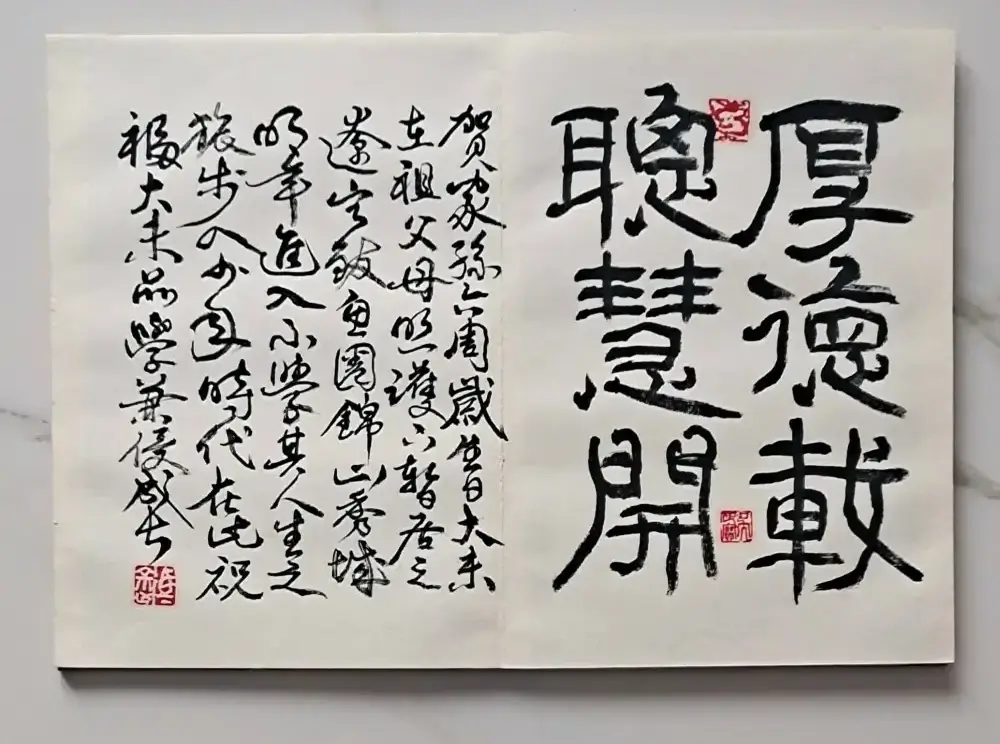 厚德載
聰慧開
賀家孫六周歲生日大未
在祖父母照護下暫居之
遼寧鞍魚圈錦山秀城
明年進入小學其人生之
旅步入少年時代在此祝
福大未品學兼優成長